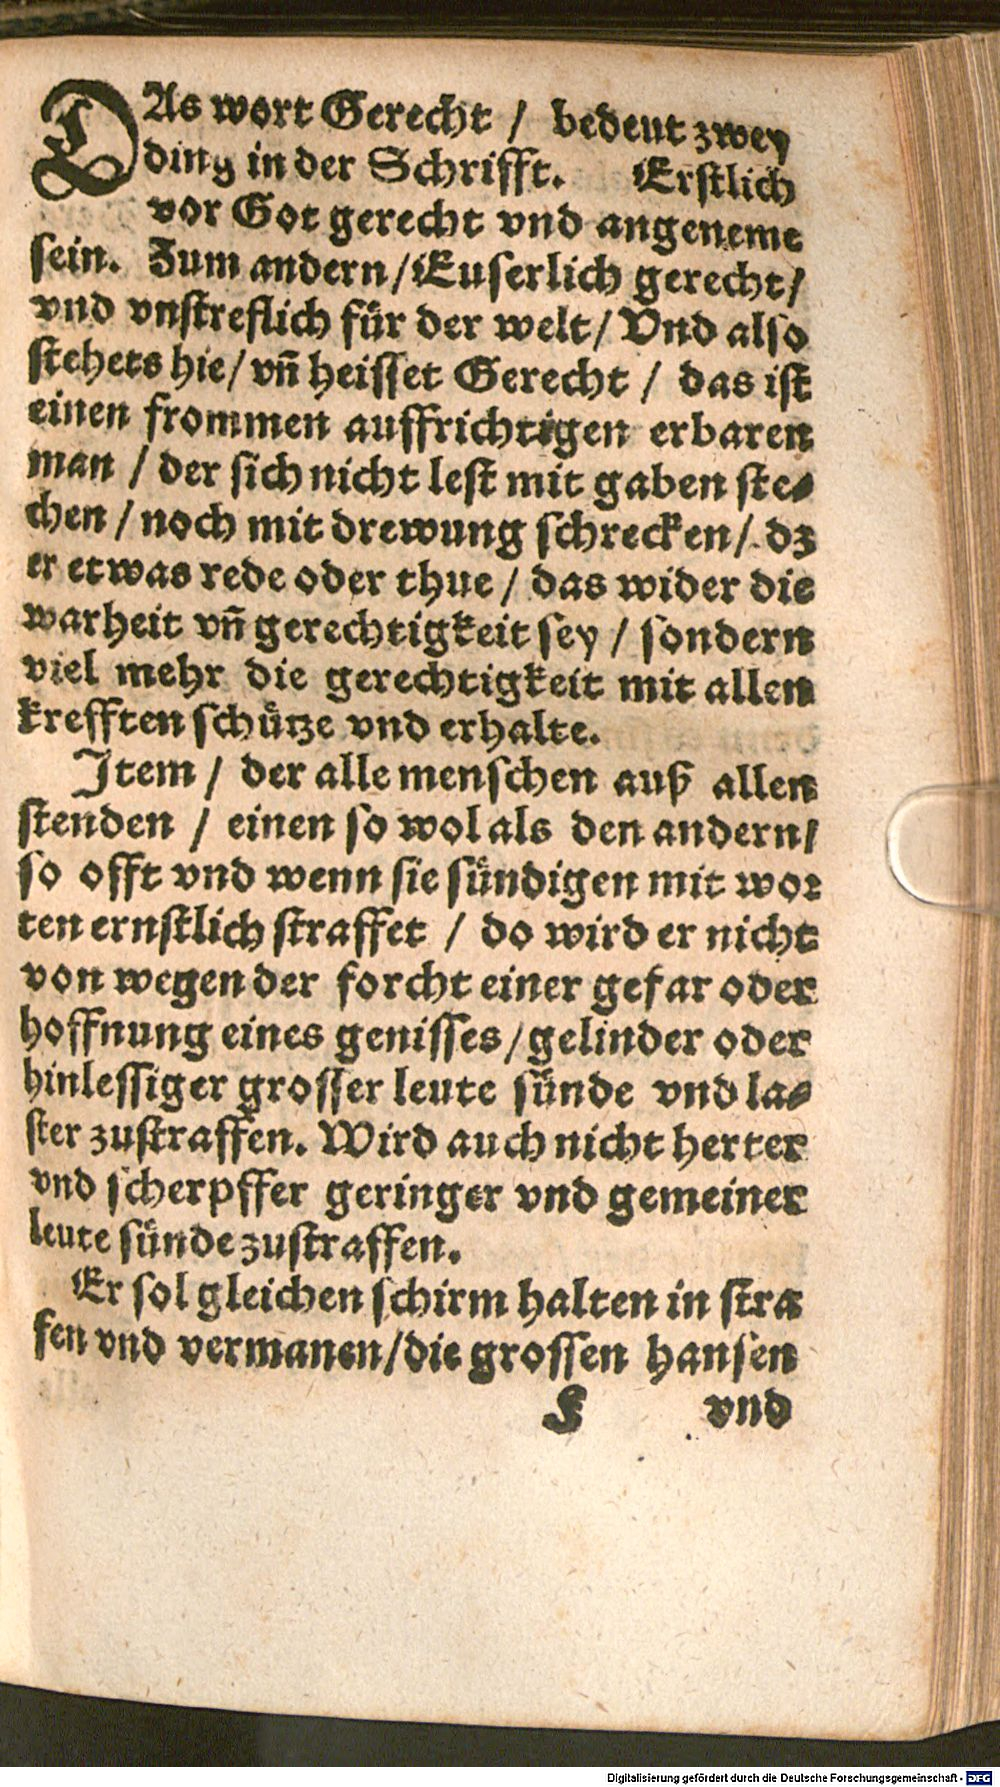 DAs wort Gerecht / bedeut zwey
ding in der Schrifft. Erstlich
vor Got gerecht vnd angeneme
sein. Zum andern / Euserlich gerecht /
vnd vnstreflich für der welt / Vnd also
stehets hie / vñ heisset Gerecht / das ist
einen frommen auffrichtigen erbaren
man / der sich nicht lest mit gaben ste⸗
chen / noch mit drewung schrecken / dz
er etwas rede oder thue / das wider die
warheit vñ gerechtigkeit sey / sondern
viel mehr die gerechtigkeit mit allen
krefften schütze vnd erhalte.
Item / der alle menschen auß allen
stenden / einen so wol als den andern /
so offt vnd wenn sie sündigen mit wor
ten ernstlich straffet / do wird er nicht
von wegen der forcht einer gefar oder
hoffnung eines genisses / gelinder oder
hinlessiger grosser leute sünde vnd la⸗
ster zustraffen. Wird auch nicht herter
vnd scherpffer geringer vnd gemeiner
leute sünde zustraffen.
Er sol gleichen schirm halten in stra
fen vnd vermanen / die grossen hansen
vnd
Digitalisierung gefördert durch die Deutsche Forschungsgemeinschaft - DFG